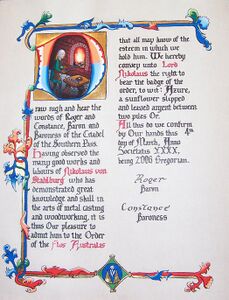 D
raw nigh and hear the
words of Roger and
Constance, Baron and
Baroness of the Citadel
of the Southern Pass.
Having observed the
many good works and
labours of Nikolaus von
Stahlburg who has
demonstrated great
knowledge and skill in
the arts of metal casting
and woodworking, it is
thus Our pleasure to
admit him to the Order
of the Flos Australis
that all may know of the
esteem in which we
hold him. We hereby
convey unto Lord
Nikolaus the right to
bear the badge of the
order, to wit: Azure,
a sunflower slipped
and leaved argent between
two piles Or.
All this do we confirm
by Our hands this 4th
day of March, Anno
Societatus XXXX,
being 2006 Gregorian.
Roger
Baron
Constance
Baroness